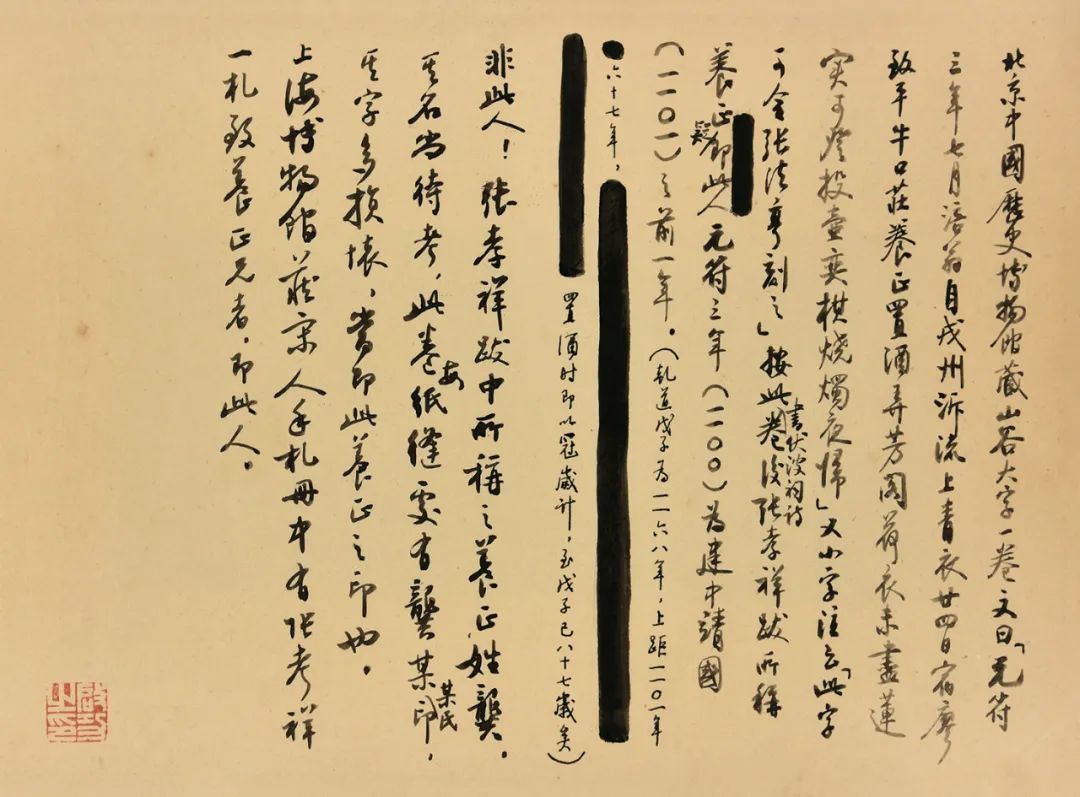 北京中國歷史博物館藏山谷大字一卷文曰「元符
三年七月涪翁自戎州泝流上青衣廿四日宿廖
致平牛口莊養正置酒弄芳閣荷衣未盡蓮
實可登投壺奕棋燒燭夜歸」又小字注云「此字
可令張法亨刻之」按此卷書伏波祠詩後張孝祥跋所稱
養正疑即此人元符三年(一一〇〇)為建中靖國
(一一〇一)之前一年。(乾道戊子為一一六八年,上距一一〇一年
六十七年,
置酒时即以冠歲計,至戊子已八十七歲矣)
非此人!張孝祥跋中所稱之養正姓龔。
其名尚待考,此卷每紙縫處有龔某某氏印,
其字多損壞,當即此養正之印也。
上海博物館藏宋人手札冊中有張孝祥
一札致養正兄者,即此人。
啟功之印